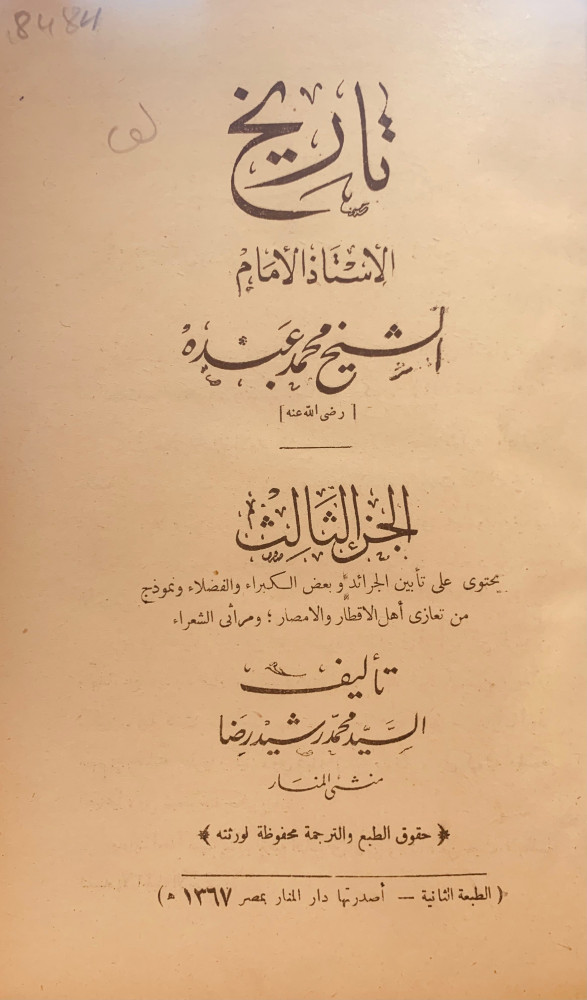 8484
تاريخ
الأستاذ الأمام
الشيخ محمد عبده
[ رضى الله عنه ]
الجزء الثالث
يحتوى على تأبين الجرائد و بعض الكبراء والفضلاء ونموذج
من تعازى أهل الاقطار والامصار ؛ ومراثى الشعراء
تأليف
السيد محمد رشيد رضا
منشئ المنار
﴿ حقوق الطبع والترجمة محفوظة لورثته ﴾
( الطبعة الثانية — أصدرتها دار المنار بمصر ١٣٦٧ ه )